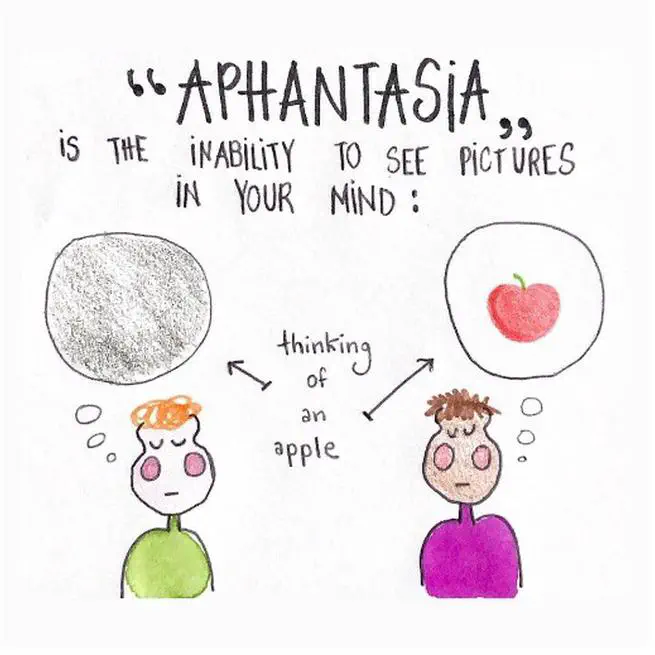 “APHANTASiA„
iS THE iNABiLiTY TO SEE PiCTURES
iN YOUR MiND :
thinking
of
an
apple